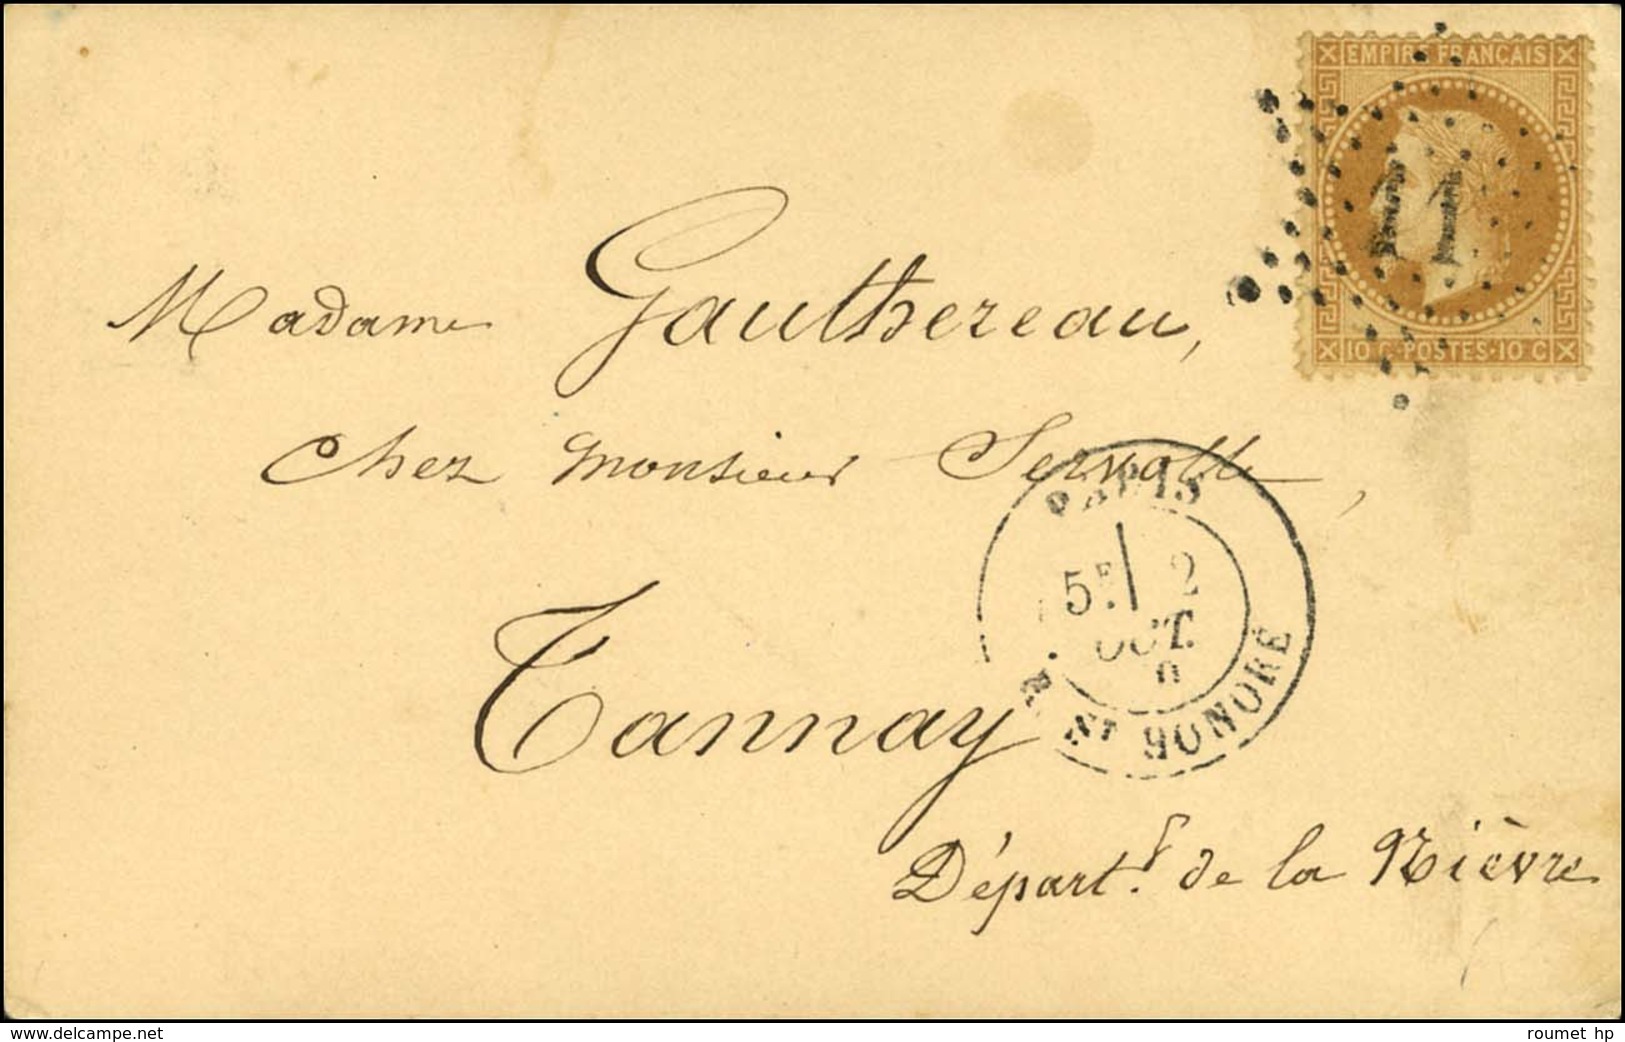 EMPIRE FRANÇAIS
11
10 C. POSTES 10 C
Madame Gauthereau,
chez monsieur
PARIS
5E 2
OCT.
HONORÉ
Tannay
Départt. de la Nièvre
www.delcampe.net
roumet hp